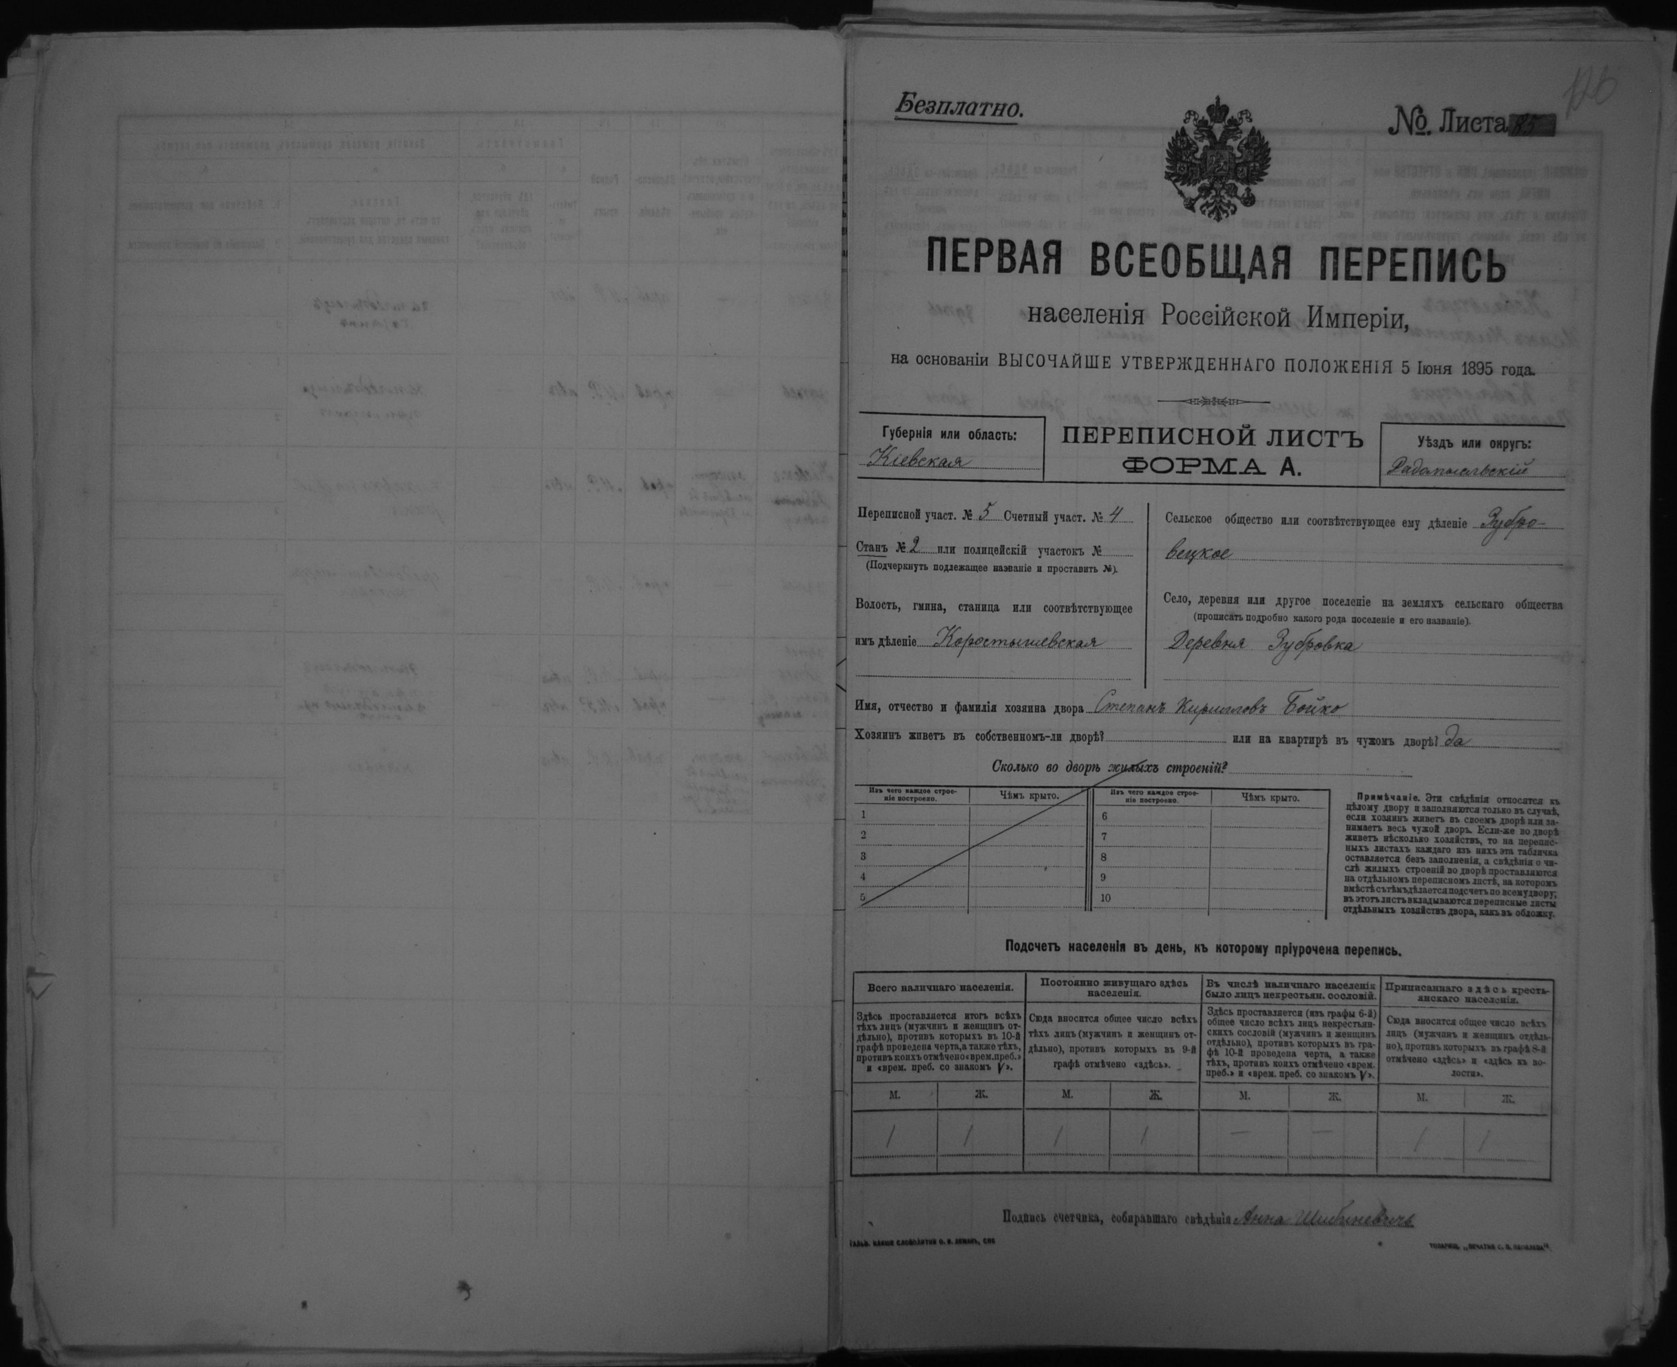 126
Безплатно.
№ Листа 85
ПЕРВАЯ ВСЕОБЩАЯ ПЕРЕПИСЬ
населенія Россійской Имперіи,
на основаніи ВЫСОЧАЙШЕ УТВЕРЖДЕННАГО ПОЛОЖЕНІЯ 5 Іюня 1895 года.
Губернія или область:
Кіевская
ПЕРЕПИСНОЙ ЛИСТЪ
ФОРМА А.
Уѣздъ или округъ:
Радомысльскій
Переписной участ. № 5 Счетный участ. № 4
Станъ № 2 или полицейскій участокъ №
(Подчеркнуть подлежащее названіе и проставить №).
Волость, гмина, станица или соотвѣтствующее
имъ дѣленіе Коростышевская
Сельское общество или соотвѣтствующее ему дѣленіе Зубро-
вецкое
Село, деревня или другое поселеніе на земляхъ сельскаго общества
(прописать подробно какого рода поселеніе и его названіе).
Деревня Зубровка
Имя, отчество и фамилія хозяина двора Степанъ Кирилловъ Бойко
Хозяинъ живетъ въ собственномъ-ли дворѣ? или на квартирѣ въ чужомъ дворѣ? да
Сколько во дворѣ жилыхъ строеній?
Изъ чего каждое строе-
ніе построено.
Чѣмъ крыто.
Изъ чего каждое строе-
ніе построено.
Чѣмъ крыто.
1
2
3
4
5
6
7
8
9
10
Примѣчаніе. Эти свѣдѣнія относятся къ
цѣлому двору и заполняются только въ случаѣ,
если хозяинъ живетъ въ своемъ дворѣ или за-
нимаетъ весь чужой дворъ. Если-же во дворѣ
живетъ нѣсколько хозяйствъ, то на перепис-
ныхъ листахъ каждаго изъ нихъ эта табличка
оставляется безъ заполненія, а свѣдѣнія о чи-
слѣ жилыхъ строеній во дворѣ проставляются
на отдѣльномъ переписномъ листѣ, на которомъ
вмѣстѣ съ тѣмъ дѣлается подсчетъ по всему двору;
въ этотъ листъ вкладываются переписные листы
отдѣльныхъ хозяйствъ двора, какъ въ обложку.
Подсчетъ населенія въ день, къ которому пріурочена перепись.
Всего наличнаго населенія.
Здѣсь проставляется итогъ всѣхъ
тѣхъ лицъ (мужчинъ и женщинъ от-
дѣльно), противъ которыхъ въ 10-й
графѣ проведена черта, а также тѣхъ,
противъ коихъ отмѣчено «врем. преб.»
и «врем. преб. со знакомъ V».
Постоянно живущаго здѣсь
населенія.
Сюда вносится общее число всѣхъ
тѣхъ лицъ (мужчинъ и женщинъ от-
дѣльно), противъ которыхъ въ 9-й
графѣ отмѣчено «здѣсь».
Въ числѣ наличнаго населенія
было лицъ некрестьян. сословій.
Здѣсь проставляется (изъ графы 6-й)
общее число всѣхъ лицъ некрестьян-
скихъ сословій (мужчинъ и женщинъ
отдѣльно), противъ которыхъ въ гра-
фѣ 10-й проведена черта, а также
тѣхъ, противъ коихъ отмѣчено «врем.
преб.» и «врем. преб. со знакомъ V».
Приписаннаго здѣсь кресть-
янскаго населенія.
Сюда вносится общее число всѣхъ
лицъ (мужчинъ и женщинъ отдѣль-
но), противъ которыхъ въ графѣ 8-й
отмѣчено «здѣсь» и «здѣсь къ во-
лости».
М. Ж. М. Ж. М. Ж. М. Ж.
1 1 1 1 — — 1 1
Подпись счетчика, собиравшаго свѣдѣнія Анна